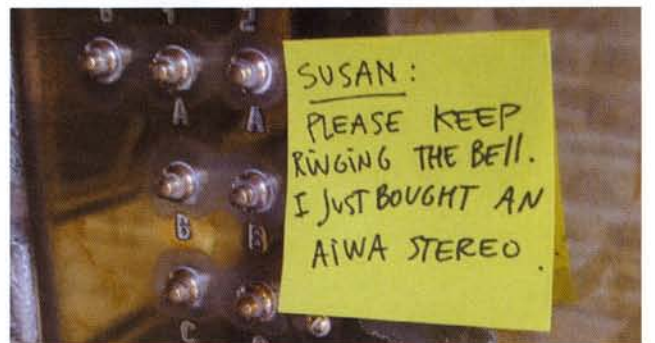 A A
B B
C
SUSAN:
PLEASE KEEP
RINGING THE BEll.
I JUST BOUGHT AN
AIWA STEREO.